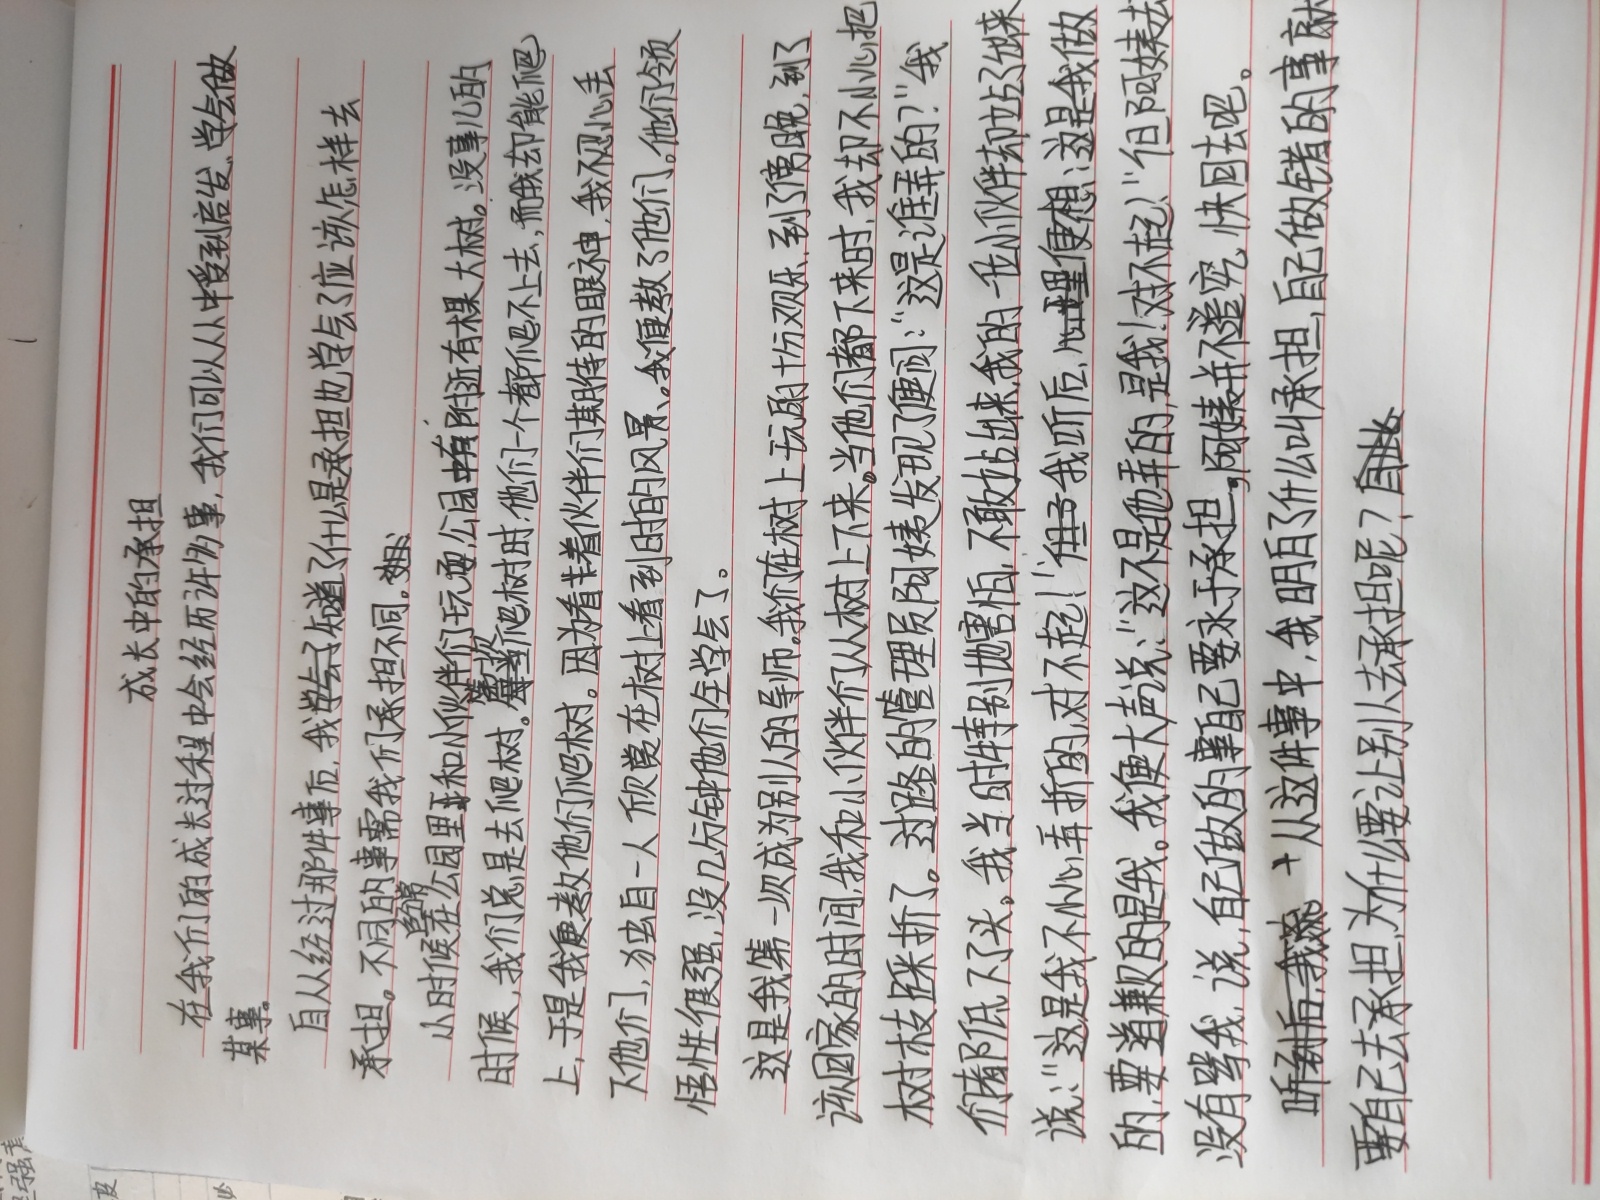 成长中的承担
在我们的成长过程中会经历许多事，我们可以从中受到启发，学会做
某事。
自从经过那件事后，我学会了知道了什么是承担也学会了应该怎样去
承担。不同的事需我们承担不同，
经常
小时候在公园里和小伙伴们玩耍，公园中有附近有棵大树。没事儿的
时候，我们总是去爬树。每当爬树时，他们一个都爬不上去，而我却能爬
上，于是我便教他们爬树。因为看着伙伴们期待的眼神，我不忍心丢
下他们，独自一人欣赏在树上看到时的风景。我便教了他们。他们领
悟性很强，没几分钟他们全学会了。
这是我第一次成为别人的导师。我们在树上玩的十分欢乐，到了傍晚，到了
该回家的时间，我和小伙伴们从树上下来。当他们都下来时，我却不小心把
树枝踩折了。对路的管理员阿姨发现了便问：“这是谁弄的？”我
们都低下了头。我当时特别地害怕，不敢站出来，我的一位小伙伴却站了出来
说：“这是我不小心弄折的，对不起！”但子我听后，心里便想：这是我做
的，要道歉的是我。我便大声说：“这不是他弄的，是我！对不起！”但阿姨去
没有骂我，说，自己做的事自己要永于承担。阿姨并不追究，快回去吧。
听到后，我 从这件事中，我明白了什么叫承担，自己做错的事就
要自己去承担，为什么要让别人去承担呢？